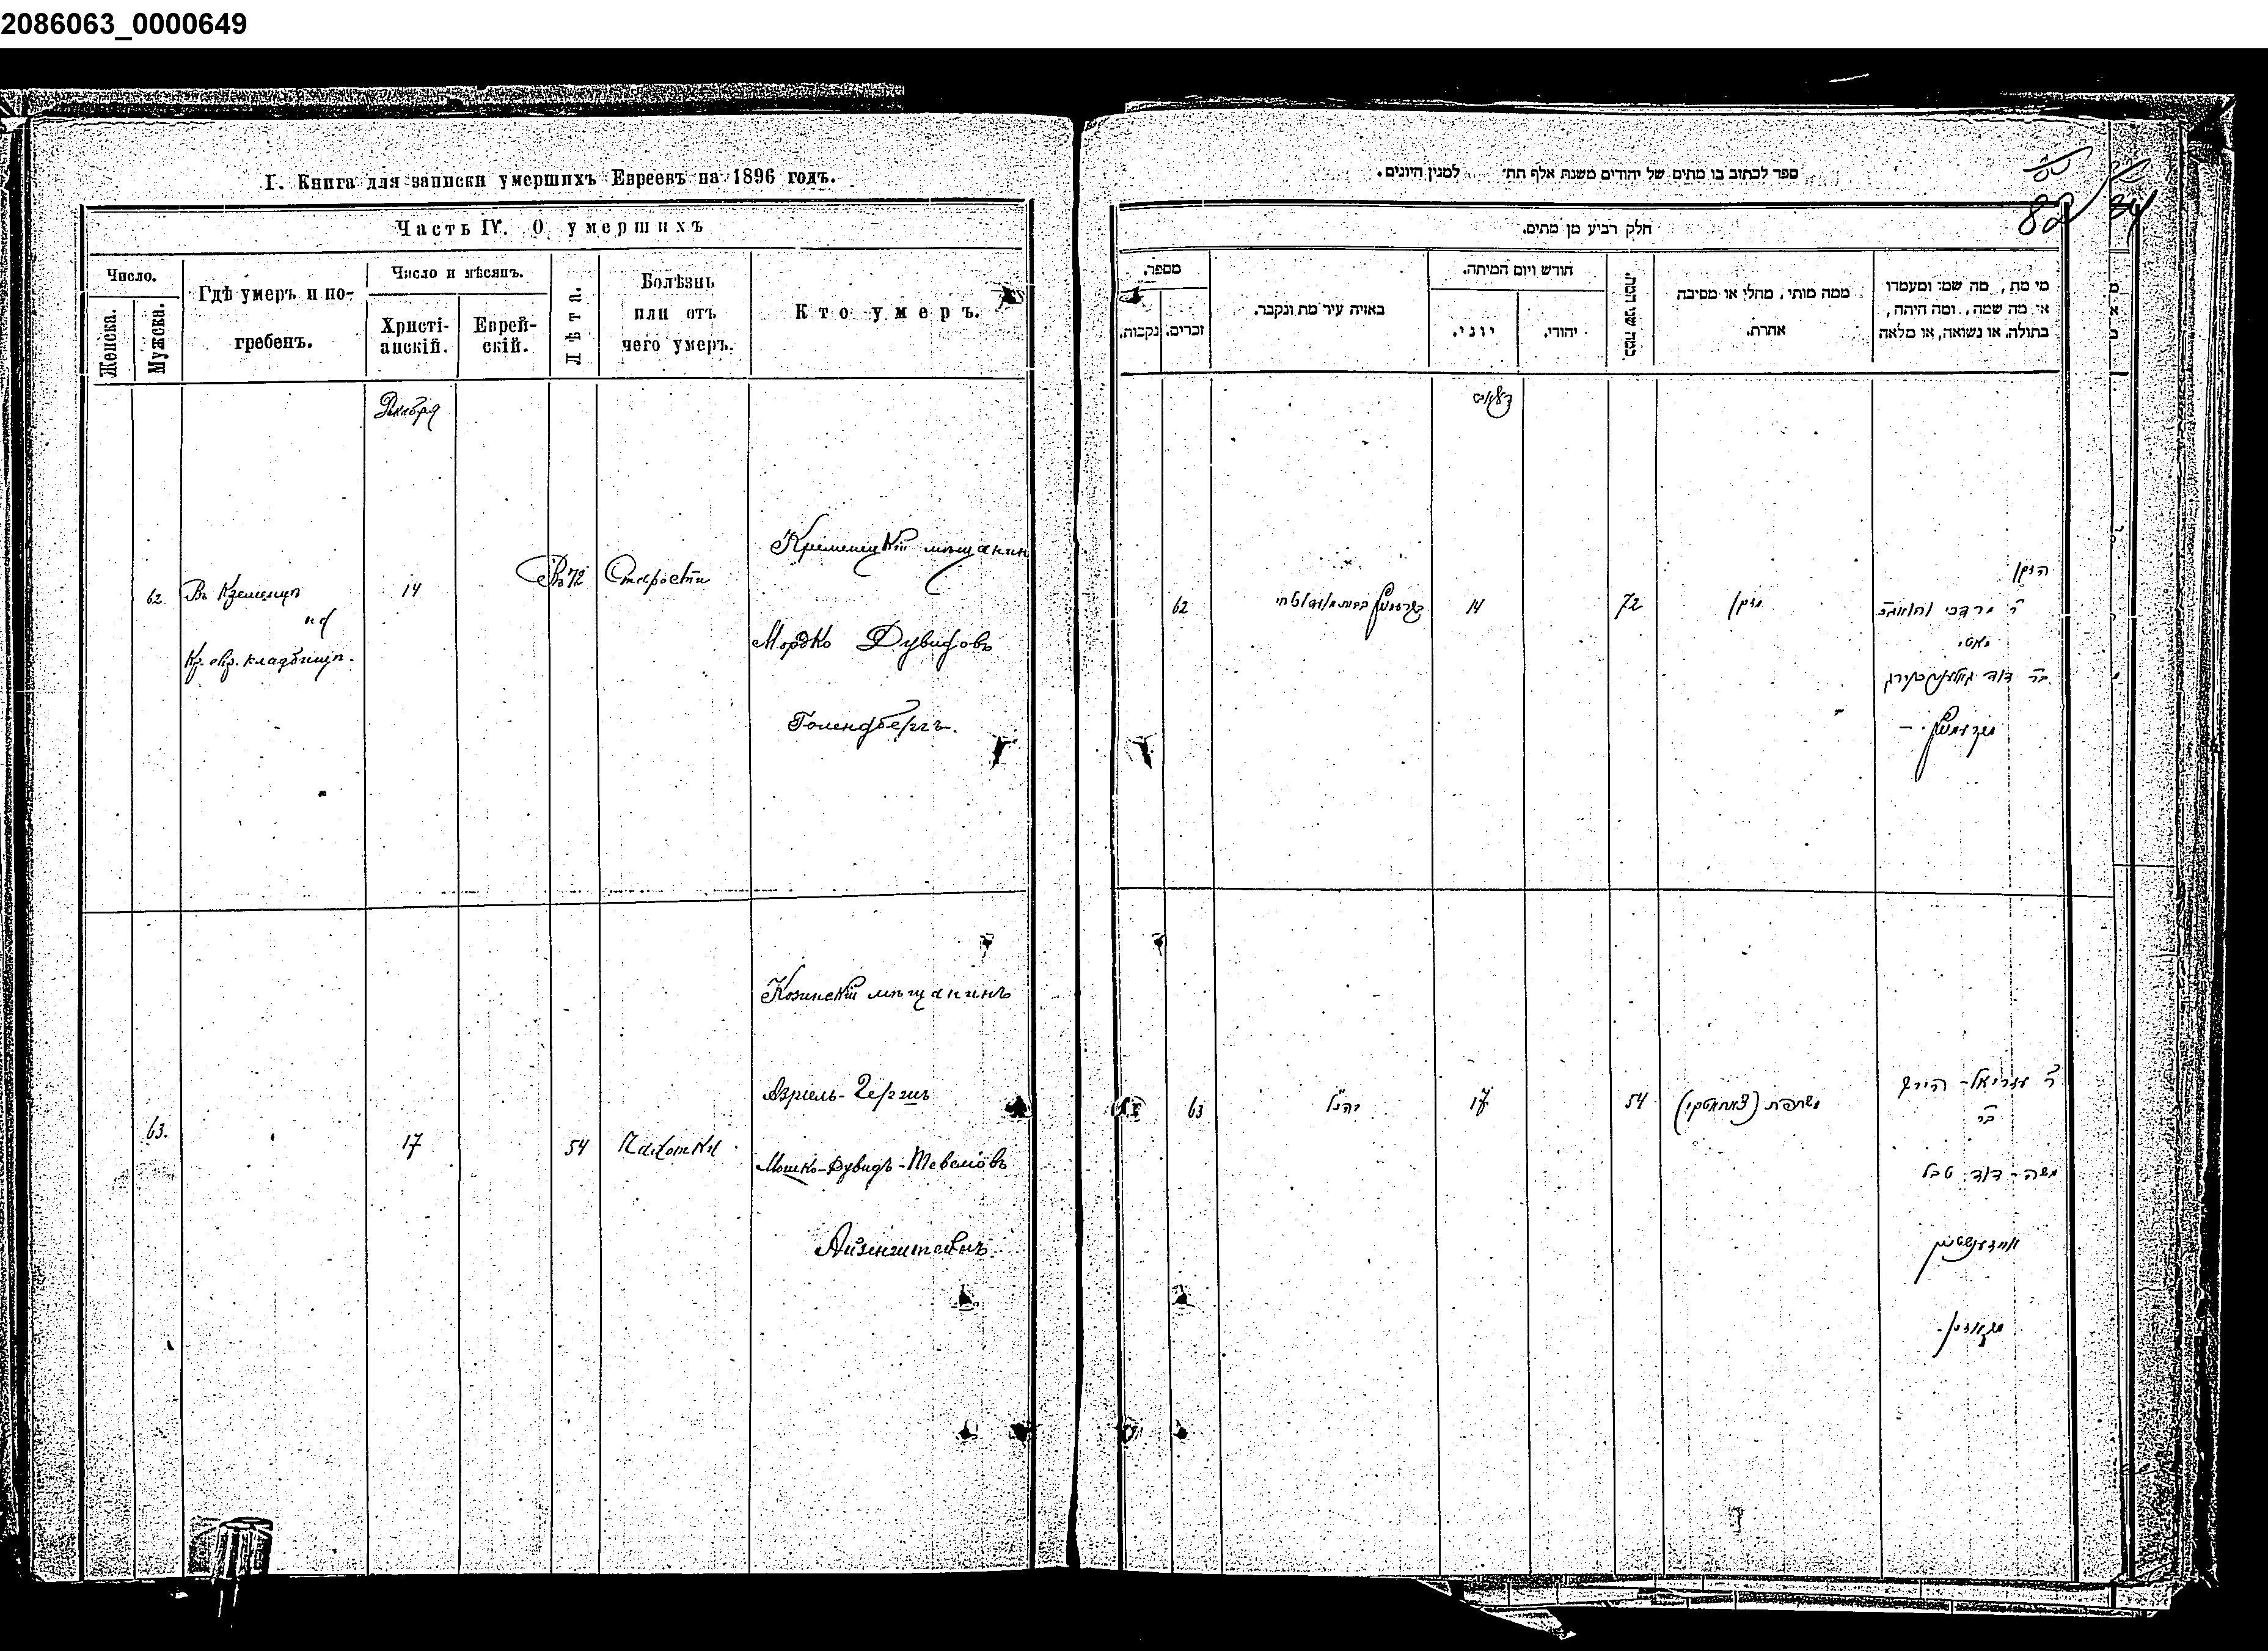 2086063_0000649
I. Книга для записки умершихъ Евреевъ на 1896 годъ.
Часть IV. О умершихъ
Число.
Женска.
Мужска.
Гдѣ умеръ и по-
гребенъ.
Число и мѣсяцъ.
Христі-
анскій.
Еврей-
скій.
Лѣта.
Болѣзнь
или отъ
чего умеръ.
Кто умеръ.
Декабря
62
Въ Кременцѣ
на
Кр. евр. кладбищѣ.
14
72
Старости
Кременецкій мѣщанин
Мордко Дувидовъ
Голендбергъ.
63.
17
54
Чахотки
Козинскій мѣщанинъ
Азріель-Гершъ
Мошко-Дувидъ-Тевелювъ
Айзенштейнъ.
ספר לכתוב בו מתים של יהודים משנת אלף תת׳ למנין היונים.
82
84
חלק רביעי מן מתים.
מספר.
נקבות.
זכרים.
באויה עיר מת ונקבר.
חודש ויום המיתה.
יוני.
יהודי.
כמה שני חמת.
ממה מותי, מחלי או מסיבה
אחרת.
מי מת, מה שמו ומעמדו
או מה שמה, ומה היתה,
בתולה, או נשואה, או מלאה
62
14
72
מזקן
הזקן
ר׳ מרדכי
בר דוד
63
כנ״ל
17
54
ר׳ עזריאל - הירש
בר
משה - דוד טבל
אייזענשטיין